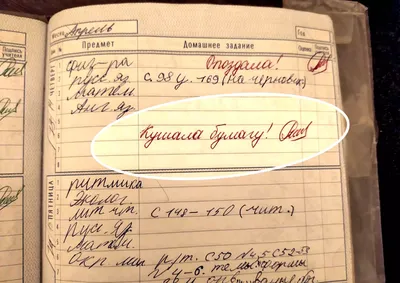 Месяц Апрель
Год
Предмет
Домашнее задание
физ-ра Опоздала!
рус. яз. с. 98 у. 169 (на чернов
матем.
Анг. яз.
Кушала бумагу!
ПЯТНИЦА
ритмика
Эколог
лит. чт. с 148-150 (чит.)
рус. яз.
Матем.
Окр. мир р/т. с 50 №4,5 с 52-53
№4-6. темы формы